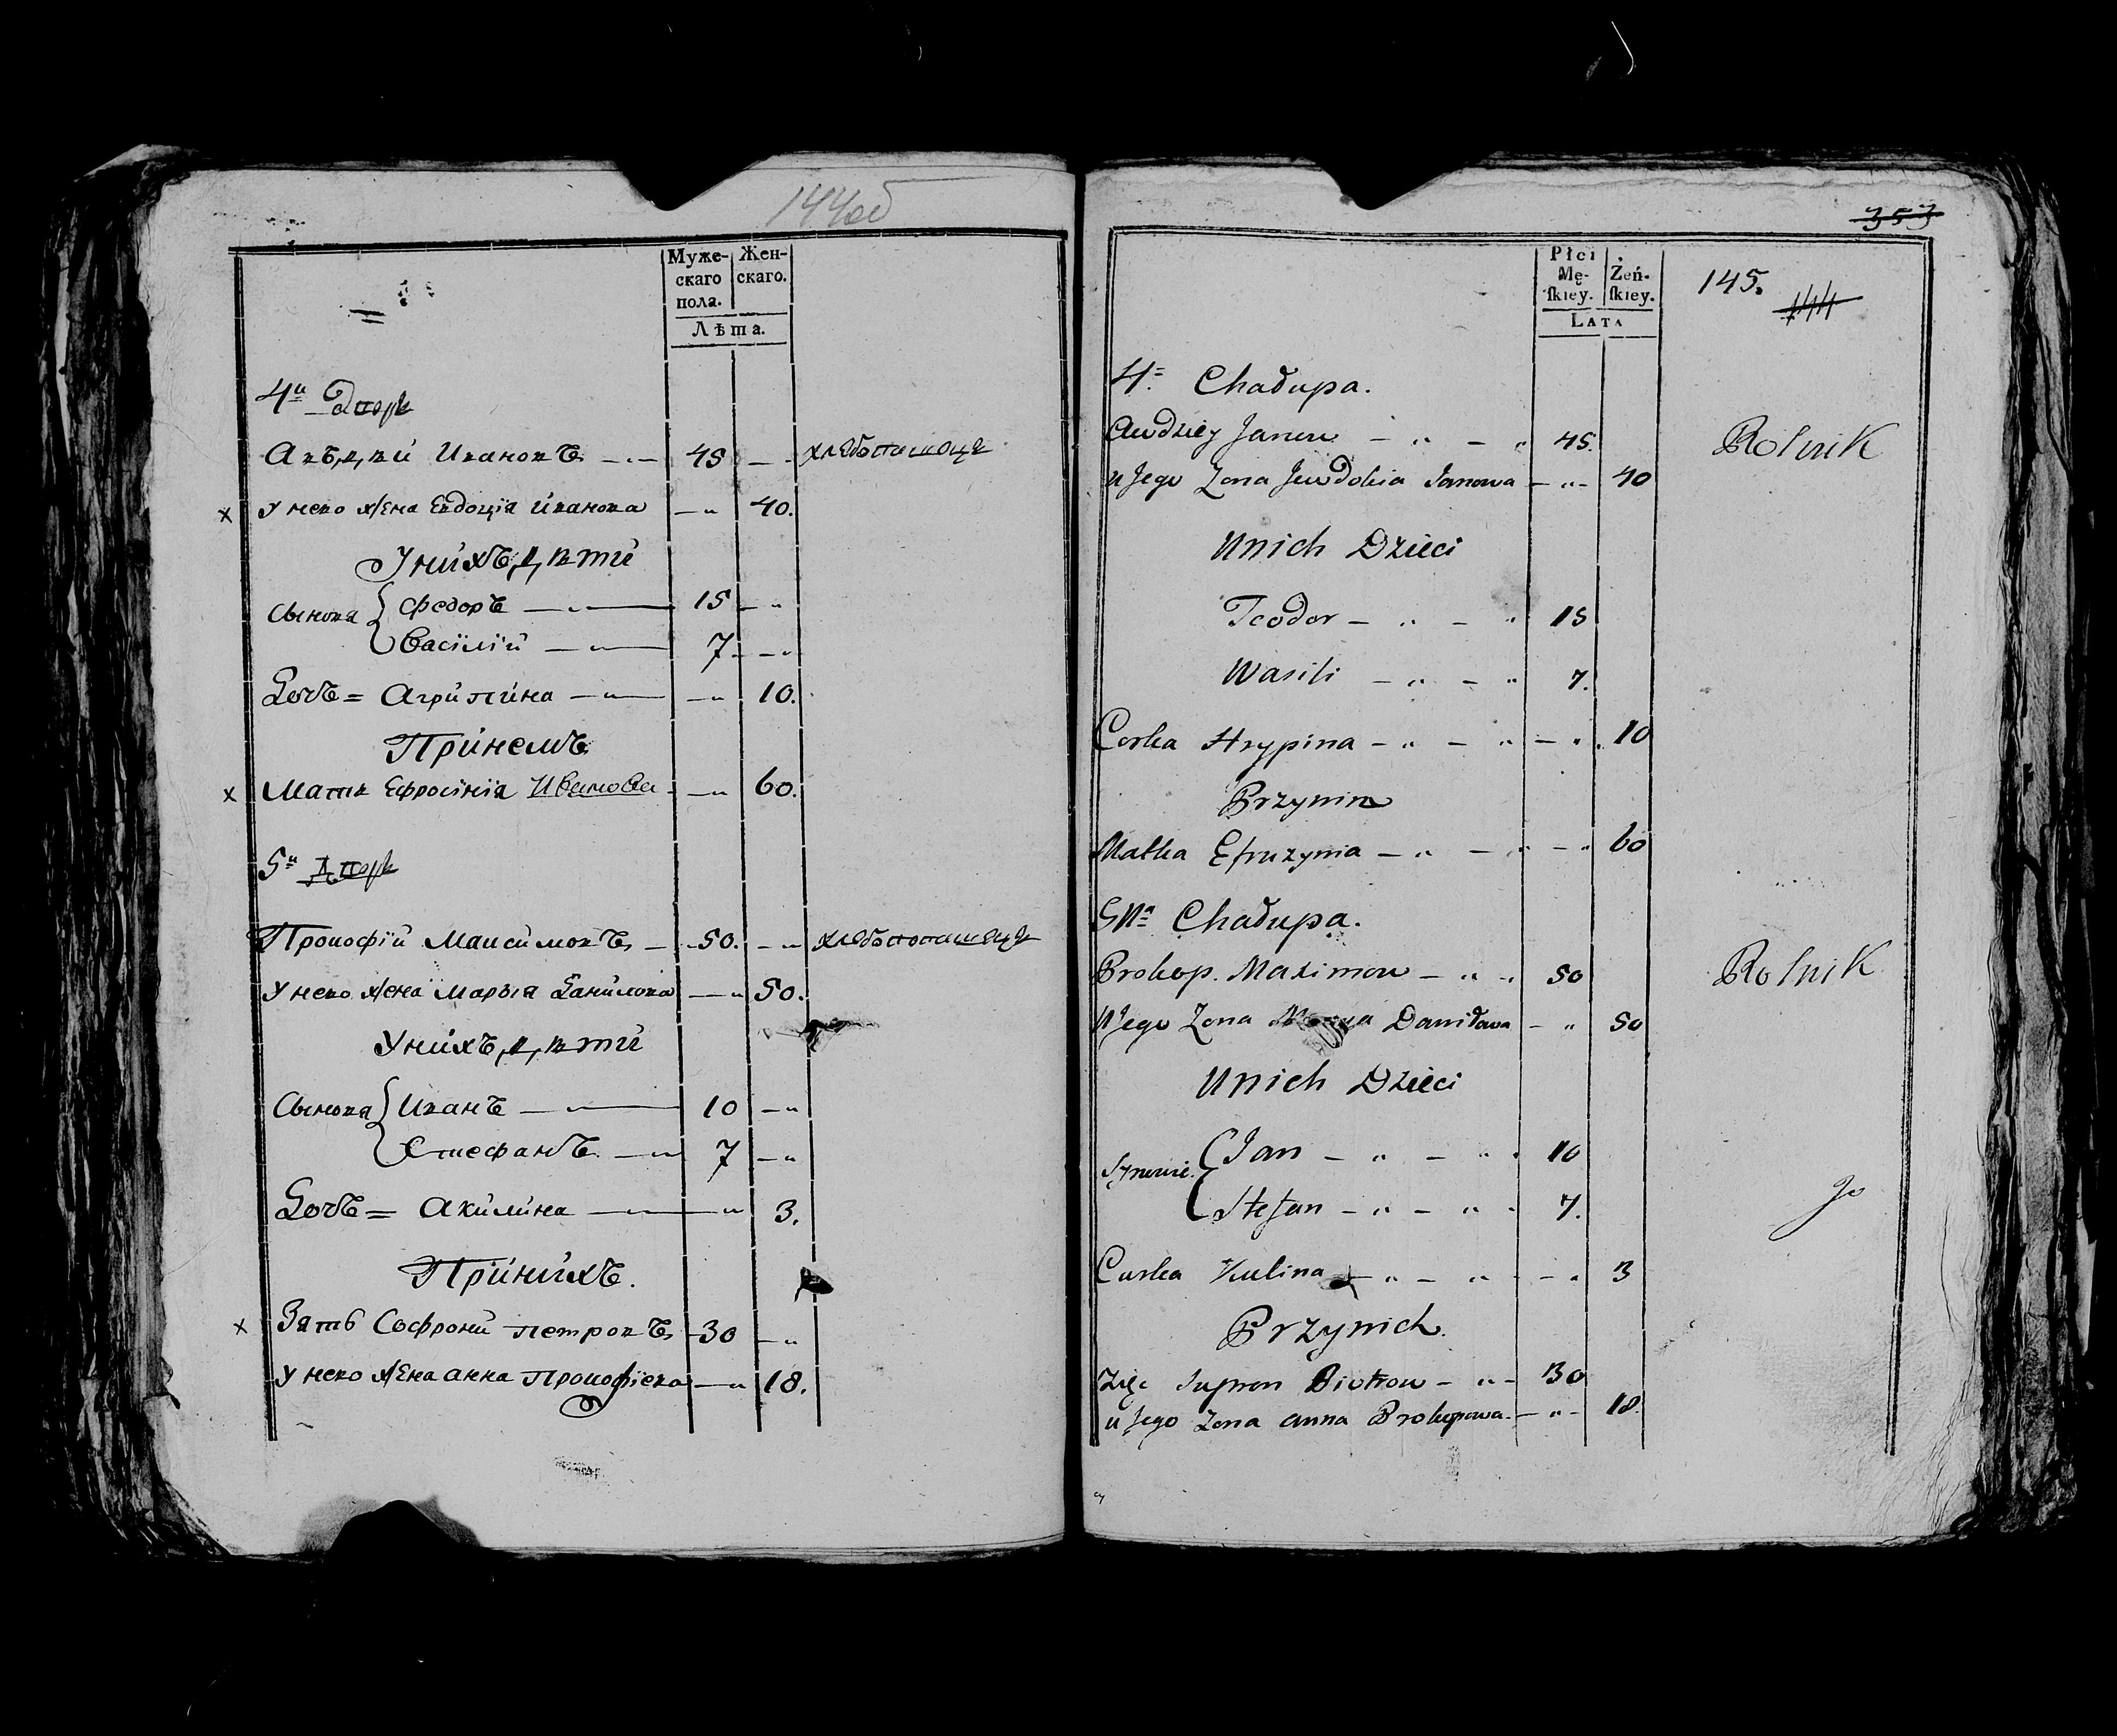 144об
Муже- Жен-
скаго скаго.
пола.
Лѣта.
4й Дворъ
Авдѣй Ивановъ 45 хлебопашецъ
х У него жена Евдоціа Иванова 40.
У нихъ дѣти
Сынова Федоръ 15
Васілій 7
Дочь = Агрипина 10.
При немъ
х Мать Ефросінія Иванова 60.
5й Дворъ
Прокофій Максимовъ 50. хлебопопашецъ
У него жена Марья Данилова 50.
У нихъ дѣти
Сынова Иванъ 10
Стефанъ 7
Дочь = Акилина 3.
При нихъ.
х Зять Софроній Петровъ 30
У него жена Анна Прокофіева 18.
353
Płci
Mę- Żeń-
ſkiey. ſkiey.
LATA
145.
144
4. Chałupa.
Awdziey Janow 45. Rolnik
u Jego Zona Jewdokia Janowa 40
U nich Dzieci
Teodor 15
Wasili 7.
Corka Hrypina 10
Przynim
Matka Efruzynia 60
5ta Chałupa.
Prokop. Maximow 50 Rolnik
U Jego Zona Marya Daniłowa 50
U nich Dzieci
Synowie. Jan 10
Stefan 7.
Curka Kulina 3
Przynich.
Zięc Supron Piotrow 30
u Jego Zona Anna Prokopowa 18.